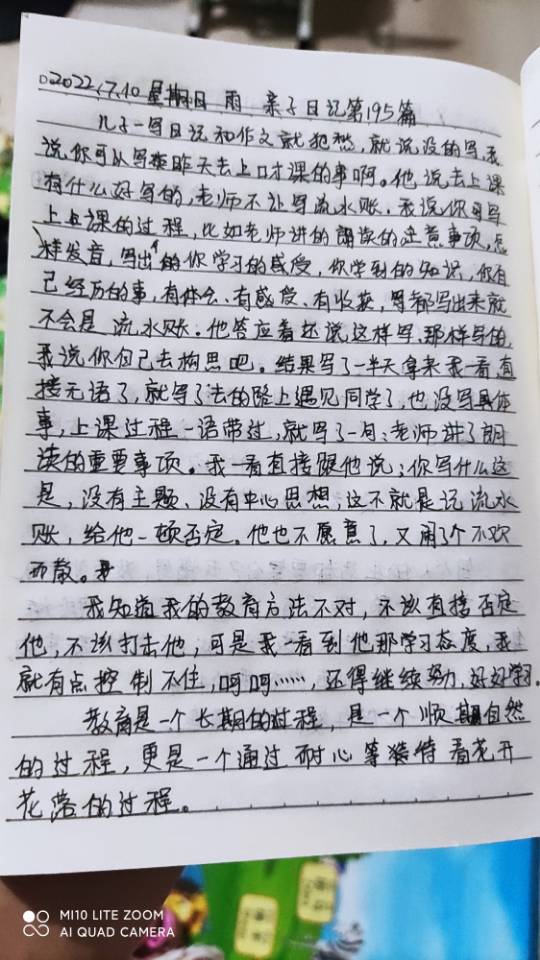 2022.7.10 星期日 雨 亲子日记第195篇
儿子一写日记和作文就犯愁,就说没的写,我
说你可以写昨天去上口才课的事啊。他说去上课
有什么好写的,老师不让写流水账。我说你可写
上课的过程,比如老师讲的朗读的注意事项,怎
样发音,写出你学习的感受,你学到的知识,你自
己经历的事,有体会、有感受、有收获,都写出来就
不会是流水账。他答应着还说这样写、那样写的,
我说你自己去构思吧。结果写了一半天拿来我一看,直
接无语了,就写了去的路上遇见同学了,也没写具体
事,上课过程一语带过,就写了一句:老师讲了朗
读的重要事项。我一看直接跟他说:你写什么这
是,没有主题、没有中心思想,这不就是记流水
账,给他一顿否定。他也不愿意了,又闹了个不欢
而散。
我知道我的教育方法不对,不该直接否定
他,不该打击他,可是我一看到他那学习态度,我
就有点控制不住,呵呵……,还得继续努力,好好学习。
教育是一个长期的过程,是一个顺其自然
的过程,更是一个通过耐心等待看花开
花落的过程。
MI 10 LITE ZOOM
AI QUAD CAMERA